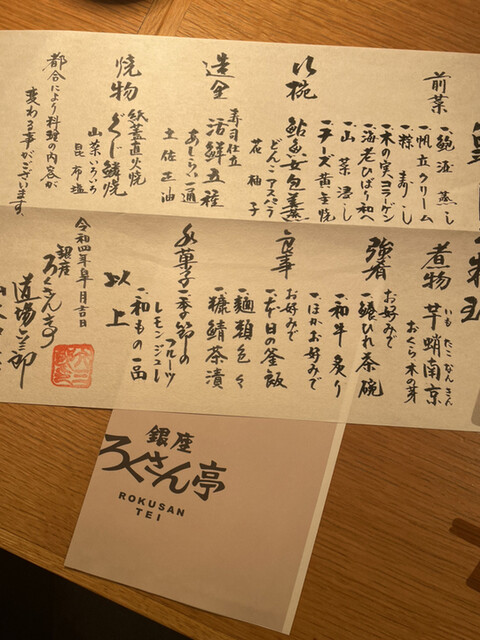 前菜
一、鮑酒蒸し
一、帆立クリーム
一、粽寿し
一、木の実コラーゲン
一、海老ひばり和へ
一、山菜浸し
一、チーズ黄金焼
沢椀
鮎魚女包み蒸
どんこアスパラ
花柚子
造里
寿司仕立
活鮮五種
あしらい一通
土佐正油
焼物
紙蓋直火焼
ぐじ鱗焼
山菜いろいろ
昆布塩
都合により料理の内容が
変わる事がございます
煮物
芋蛸南京
いも たこ なんきん
おくら 木の芽
強肴
お好みで
一、鱶ひれ茶碗
一、和牛炙り
一、ほかお好みで
食事
お好みで
一、本日の釜飯
一、麺類色々
一、糠鯖茶漬
水菓子
季節のフルーツ
レモンジュレ
一、和もの一品
以上
令和四年皐月吉日
銀座
ろくさん亭
道場六三郎
銀座
ろくさん亭
ROKUSAN
TEI